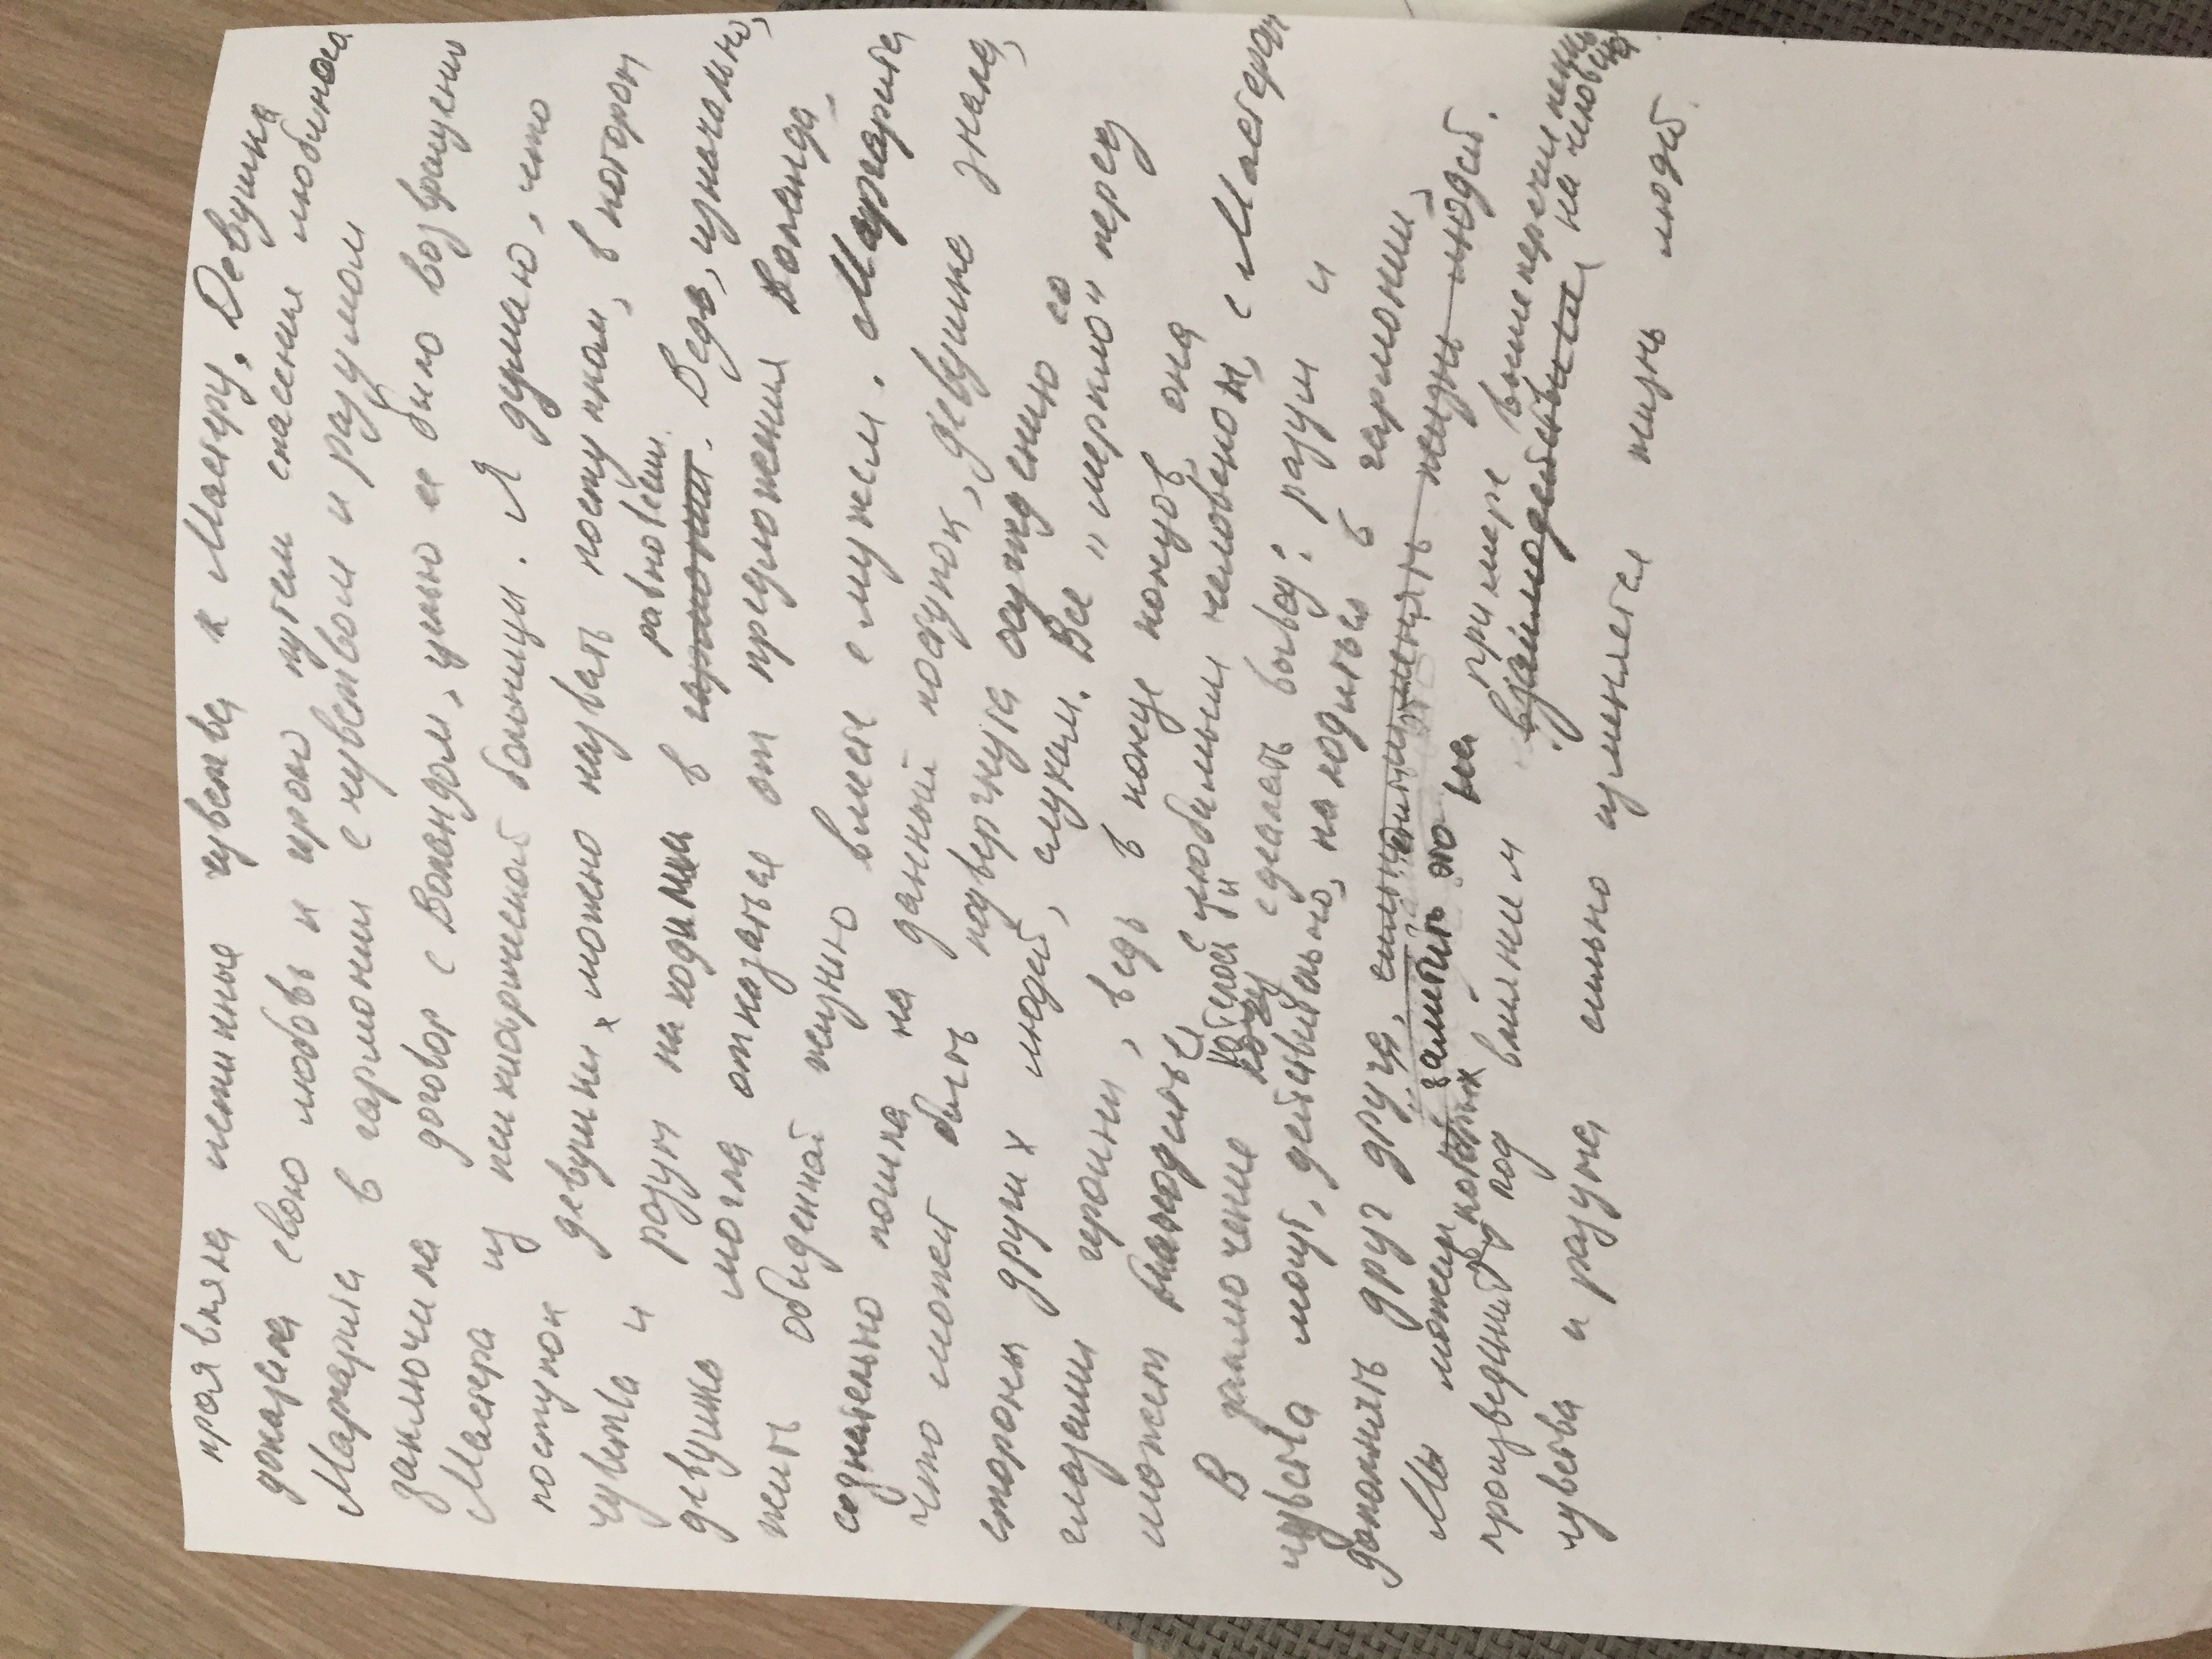 проявляла истинные чувства к Мастеру. Девушка
доказала свою любовь и игрой путём спасения любимого
Маргарита в гармонии с чувством и разумом
заключила договор с Воландом, целью её было возвращению
Мастера из психиатрической больницы. Я думаю, что
поступок девушки, можно назвать поступком, в котором
чувства и разум находились в равновесии. Ведь, изначально,
девушка могла отказаться от предложения Воланда,
жить обыденной жизнью вместе с мужем. Маргарита
сознательно пошла на данный поступок, девушка знала,
что может быть подвергнута осуждению со
стороны других людей, слухам. Все "меркло" перед
глазами героини, ведь в конце концов, она
может находиться с любимым человеком, с Мастером
В заключение хочу сделать вывод: разум и
чувства могут, действительно, находиться в гармонии,
дополнять друг друга, жизнь людей.
Мы можем заметить это на примере вышеперечисленных
произведений, в которых под влиянием на человека
чувства и разума сильно изменяется жизнь людей.